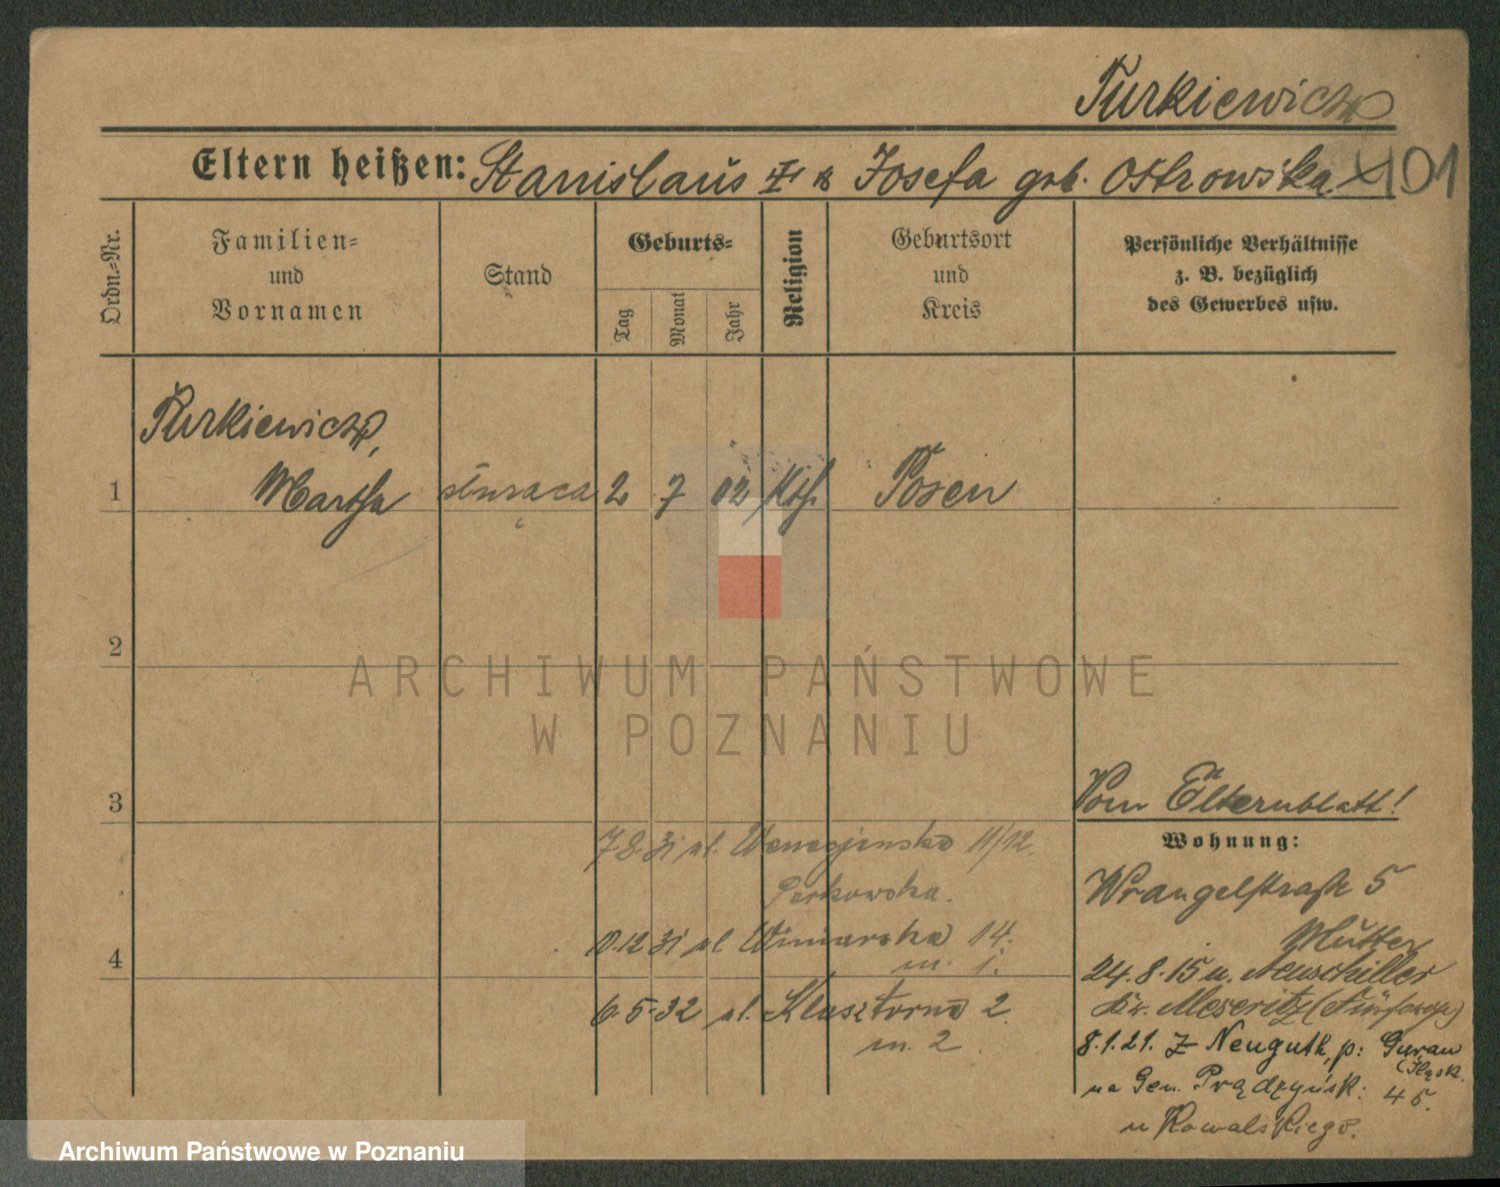 Turkiewicz
Eltern heißen: Stanislaus † & Josefa geb. Ostrowska 101
Ordn.-Nr.
Familien-
und
Vornamen
Stand
Geburts-
Tag
Monat
Jahr
Religion
Geburtsort
und
Kreis
Persönliche Verhältnisse
z. B. bezüglich
des Gewerbes usw.
Turkiewicz,
1 Martha służąca 2 7 02 Kth. Posen
2
3
4
Vom Elternblatt!
Wohnung:
Wrangelstraße 5
Mutter
24.8.15 n. Neuschiller
Kr. Meseritz
8.1.21. z Neuguth, p: Gurau
na Gen. Prądzyńsk: 45.
u Kowalskiego.
7 8 31 ul. 11/12.
Perkowska.
10.12 31 ul Winiarska 14.
m. 1.
6.5.32 ul. Klasztorna 2
m. 2
ARCHIWUM PAŃSTWOWE
W POZNANIU
Archiwum Państwowe w Poznaniu